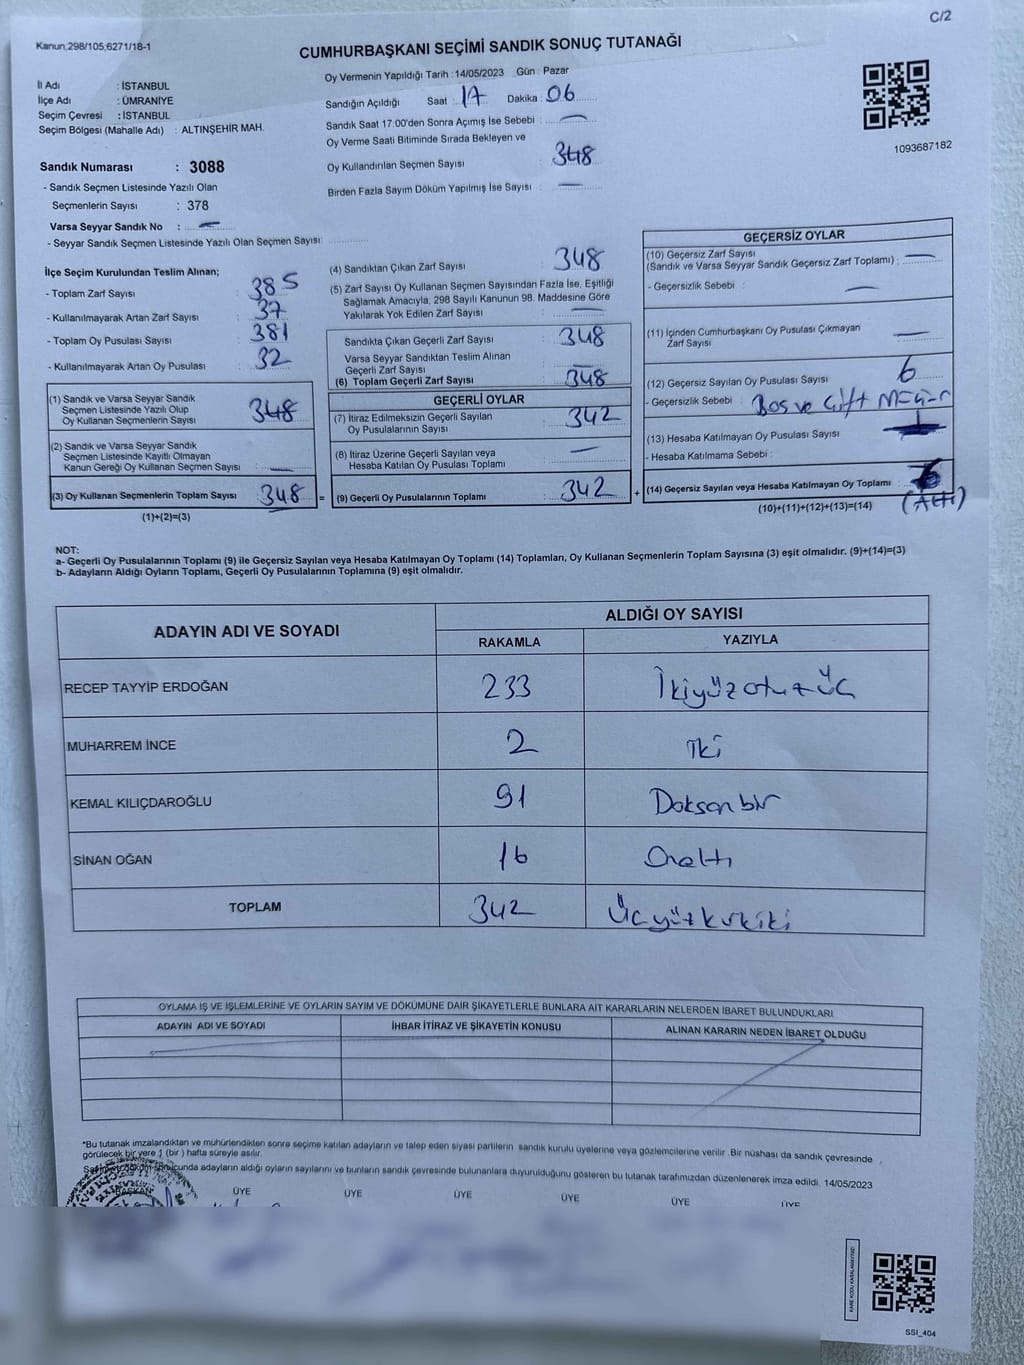 C/2
Kanun,298/105,6271/18-1
CUMHURBAŞKANI SEÇİMİ SANDIK SONUÇ TUTANAĞI
İl Adı : İSTANBUL
İlçe Adı : ÜMRANİYE
Seçim Çevresi : İSTANBUL
Seçim Bölgesi (Mahalle Adı) : ALTINŞEHİR MAH.
Oy Vermenin Yapıldığı Tarih : 14/05/2023 Gün : Pazar
Sandığın Açıldığı Saat : 17 Dakika : 06
Sandık Saat 17:00'den Sonra Açımış İse Sebebi : —
Oy Verme Saati Bitiminde Sırada Bekleyen ve
Oy Kullandırılan Seçmen Sayısı : 348
Birden Fazla Sayım Döküm Yapılmış İse Sayısı : —
1093687182
Sandık Numarası : 3088
- Sandık Seçmen Listesinde Yazılı Olan
Seçmenlerin Sayısı : 378
Varsa Seyyar Sandık No : —
- Seyyar Sandık Seçmen Listesinde Yazılı Olan Seçmen Sayısı:
İlçe Seçim Kurulundan Teslim Alınan;
- Toplam Zarf Sayısı : 385
- Kullanılmayarak Artan Zarf Sayısı : 37
- Toplam Oy Pusulası Sayısı : 381
- Kullanılmayarak Artan Oy Pusulası : 32
(1) Sandık ve Varsa Seyyar Sandık
Seçmen Listesinde Yazılı Olup
Oy Kullanan Seçmenlerin Sayısı : 348
(2) Sandık ve Varsa Seyyar Sandık
Seçmen Listesinde Kayıtlı Olmayan
Kanun Gereği Oy Kullanan Seçmen Sayısı : —
(3) Oy Kullanan Seçmenlerin Toplam Sayısı : 348 =
(1)+(2)=(3)
(4) Sandıktan Çıkan Zarf Sayısı : 348
(5) Zarf Sayısı Oy Kullanan Seçmen Sayısından Fazla İse, Eşitliği
Sağlamak Amacıyla, 298 Sayılı Kanunun 98. Maddesine Göre
Yakılarak Yok Edilen Zarf Sayısı : —
Sandıkta Çıkan Geçerli Zarf Sayısı : 348
Varsa Seyyar Sandıktan Teslim Alınan
Geçerli Zarf Sayısı : —
(6) Toplam Geçerli Zarf Sayısı : 348
GEÇERLİ OYLAR
(7) İtiraz Edilmeksizin Geçerli Sayılan
Oy Pusulalarının Sayısı : 342
(8) İtiraz Üzerine Geçerli Sayılan veya
Hesaba Katılan Oy Pusulası Toplamı : —
(9) Geçerli Oy Pusulalarının Toplamı : 342 +
GEÇERSİZ OYLAR
(10) Geçersiz Zarf Sayısı
(Sandık ve Varsa Seyyar Sandık Geçersiz Zarf Toplamı) : —
- Geçersizlik Sebebi : —
(11) İçinden Cumhurbaşkanı Oy Pusulası Çıkmayan
Zarf Sayısı : —
(12) Geçersiz Sayılan Oy Pusulası Sayısı : 6
- Geçersizlik Sebebi : Boş ve Çift
(13) Hesaba Katılmayan Oy Pusulası Sayısı :
- Hesaba Katılmama Sebebi :
(14) Geçersiz Sayılan veya Hesaba Katılmayan Oy Toplamı : 6
(Altı)
(10)+(11)+(12)+(13)=(14)
NOT:
a- Geçerli Oy Pusulalarının Toplamı (9) ile Geçersiz Sayılan veya Hesaba Katılmayan Oy Toplamı (14) Toplamları, Oy Kullanan Seçmenlerin Toplam Sayısına (3) eşit olmalıdır. (9)+(14)=(3)
b- Adayların Aldığı Oyların Toplamı, Geçerli Oy Pusulalarının Toplamına (9) eşit olmalıdır.
ADAYIN ADI VE SOYADI
ALDIĞI OY SAYISI
RAKAMLA YAZIYLA
RECEP TAYYİP ERDOĞAN 233 İkiyüzotuzüç
MUHARREM İNCE 2 iki
KEMAL KILIÇDAROĞLU 91 Doksanbir
SİNAN OĞAN 16 Onaltı
TOPLAM 342 Üçyüzkırkiki
OYLAMA İŞ VE İŞLEMLERİNE VE OYLARIN SAYIM VE DÖKÜMÜNE DAİR ŞİKAYETLERLE BUNLARA AİT KARARLARIN NELERDEN İBARET BULUNDUKLARI
ADAYIN ADI VE SOYADI İHBAR İTİRAZ VE ŞİKAYETİN KONUSU ALINAN KARARIN NEDEN İBARET OLDUĞU
*Bu tutanak imzalandıktan ve mühürlendikten sonra seçime katılan adayların ve talep eden siyasi partilerin sandık kurulu üyelerine veya gözlemcilerine verilir. Bir nüshası da sandık çevresinde
görülecek bir yere 1 (bir) hafta süreyle asılır.
sonucunda adayların aldığı oyların sayılarını ve bunların sandık çevresinde bulunanlara duyurulduğunu gösteren bu tutanak tarafımızdan düzenlenerek imza edildi. 14/05/2023
BAŞKAN ÜYE ÜYE ÜYE ÜYE ÜYE ÜYE
SSI_404